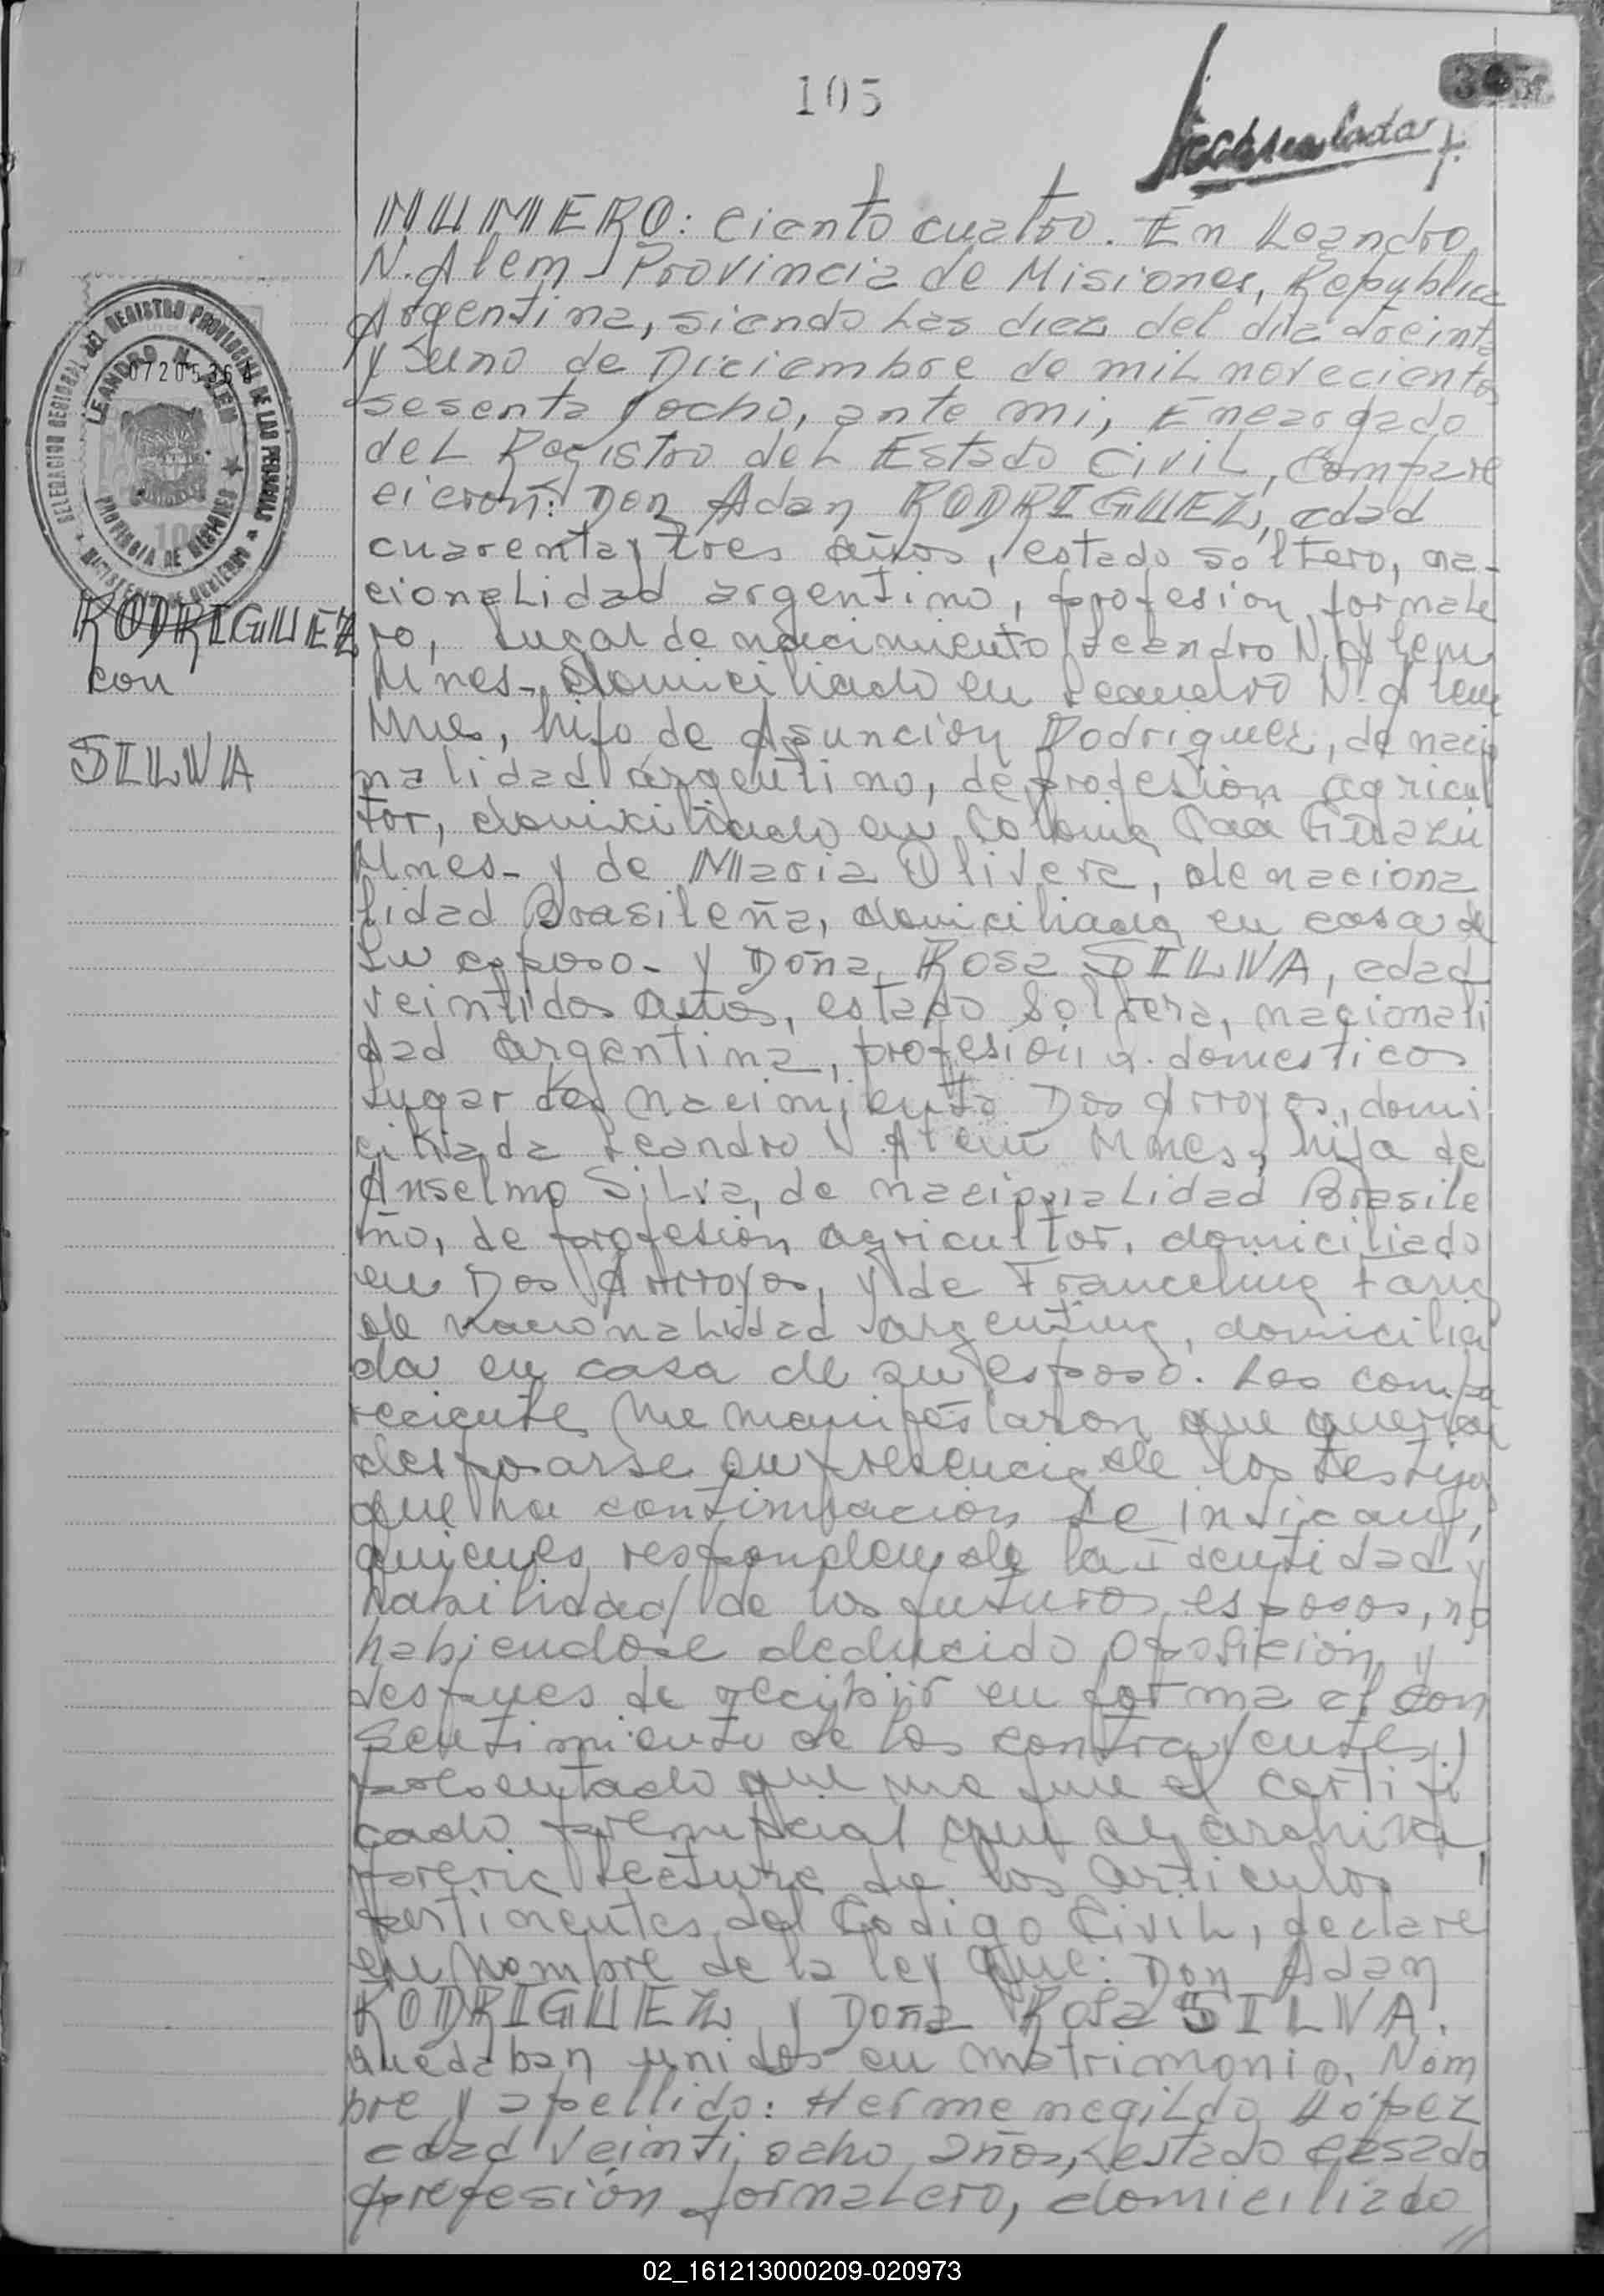 105
NUMERO: ciento cuatro. En Leandro
N. Alem Provincia de Misiones, Republica
Argentina, siendo Las diez del día treinta
y uno de Diciembre de mil novecientos
sesenta y ocho, ante mi, Encargado
del Registro del Estado Civil, Compare
cieron: Don Adan RODRIGUEZ, edad
cuarenta y tres años, estado soltero, na-
cionalidad argentino, profesion jornale
ro, Lugar de nacimiento Leandro N. Alem
Mnes-, domiciliado en Leandro N. Alem
Mnes, hijo de Asuncion Rodriguez, de nacio
nalidad argentino, de profesion agricul
tor, domiciliado en Colonia Caá Guazu
Mnes- y de Maria Olivera, de naciona
lidad Brasileña, domiciliada en casa de
Su esposo- y Doña Rosa SILVA, edad
veintidos años, estado Soltera, nacionali
dad argentina, profesion q. domesticos
Lugar de nacimiento Dos Arroyos, domi
ciliada Leandro N. Alem Mnes, hija de
Anselmo Silva, de nacionalidad Brasile
ño, de profesion agricultor, domiciliado
en Dos Arroyos, y de Francelina Faria
de nacionalidad argentina, domicilia
da en casa de su esposo. Los compa
reciente, Me manifestaron que querian
desposarse en presencia de los testigos
que ha continuacion se indican,
quienes responden de la Identidad y
habilidad de los futuros esposos, no
habiendose deducido oposicion y
despues de recibir en forma el con
sentimiento de los contrayentes,
presentado que me fue el certifi
cado prenupcial que se archiva
previa lectura de los articulos
pertinentes del Codigo Civil, declare
en Nombre de la ley que: Don Adan
RODRIGUEZ y Doña Rosa SILVA.
quedaban unidos en matrimonio. Nom
bre y apellido: Hermenegildo López
edad veinti ocho años, estado casado
profesión jornalero, domiciliado
DELEGACION REGIONAL DEL REGISTRO PROVINCIAL DE LAS PERSONAS
LEANDRO N. ALEM
PROVINCIA DE MISIONES
MINISTERIO DE GOBIERNO
RODRIGUEZ
con
SILVA
02_161213000209-020973